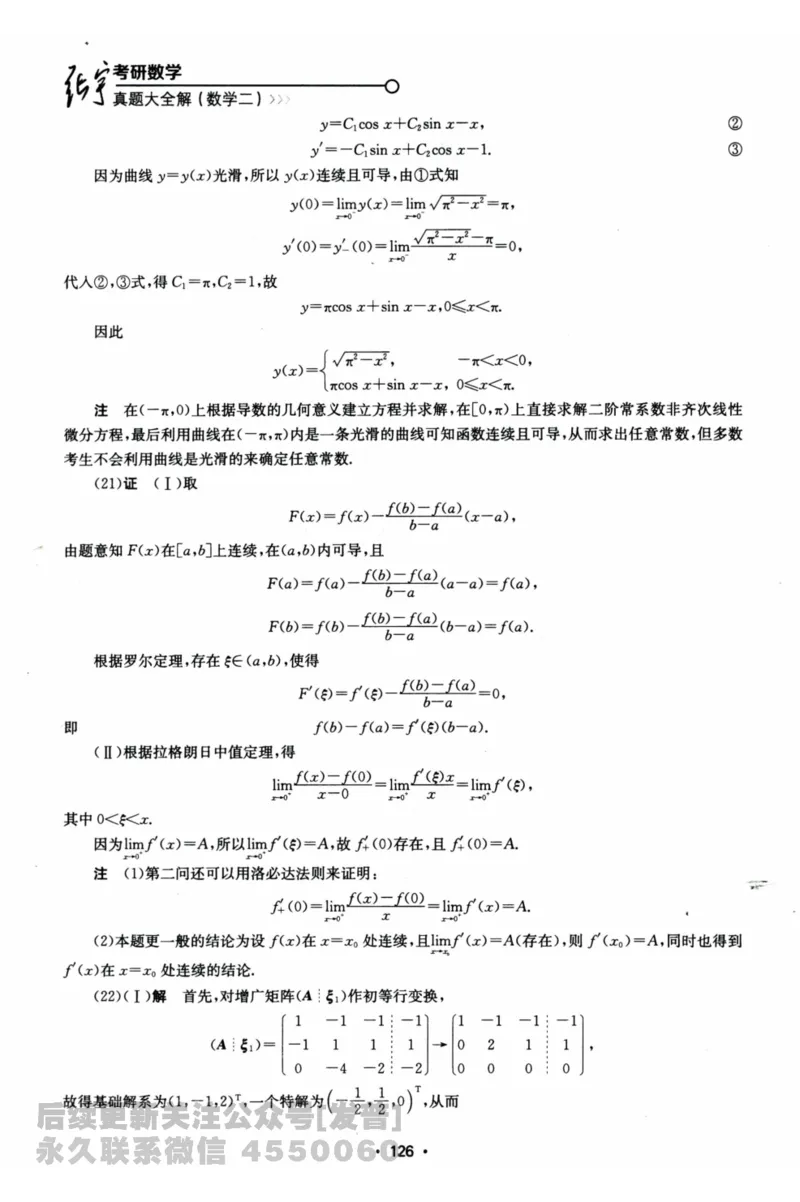 张宇考研数学
真题大全解(数学二)>>>
y=C₁cos x+C₂sin x−x, ②
y′=−C₁sin x+C₂cos x−1. ③
因为曲线 y=y(x)光滑,所以 y(x)连续且可导,由①式知
y(0)=lim_{x→0⁻} y(x)=lim_{x→0⁻} √(π²−x²)=π,
y′(0)=y′₋(0)=lim_{x→0⁻} (√(π²−x²)−π)/x=0,
代入②,③式,得 C₁=π,C₂=1,故
y=πcos x+sin x−x,0⩽x<π.
因此
y(x)={√(π²−x²), −π<x<0,
πcos x+sin x−x, 0⩽x<π.
注 在(−π,0)上根据导数的几何意义建立方程并求解,在[0,π)上直接求解二阶常系数非齐次线性
微分方程,最后利用曲线在(−π,π)内是一条光滑的曲线可知函数连续且可导,从而求出任意常数,但多数
考生不会利用曲线是光滑的来确定任意常数.
(21)证 (Ⅰ)取
F(x)=f(x)−(f(b)−f(a))/(b−a)(x−a),
由题意知 F(x)在[a,b]上连续,在(a,b)内可导,且
F(a)=f(a)−(f(b)−f(a))/(b−a)(a−a)=f(a),
F(b)=f(b)−(f(b)−f(a))/(b−a)(b−a)=f(a).
根据罗尔定理,存在 ξ∈(a,b),使得
F′(ξ)=f′(ξ)−(f(b)−f(a))/(b−a)=0,
即 f(b)−f(a)=f′(ξ)(b−a).
(Ⅱ)根据拉格朗日中值定理,得
lim_{x→0⁺} (f(x)−f(0))/(x−0)=lim_{x→0⁺} f′(ξ)x/x=lim_{x→0⁺} f′(ξ),
其中 0<ξ<x.
因为lim_{x→0⁺} f′(x)=A,所以lim_{x→0⁺} f′(ξ)=A,故 f′₊(0)存在,且 f′₊(0)=A.
注 (1)第二问还可以用洛必达法则来证明:
f′₊(0)=lim_{x→0⁺} (f(x)−f(0))/x=lim_{x→0⁺} f′(x)=A.
(2)本题更一般的结论为设 f(x)在 x=x₀ 处连续,且lim_{x→x₀} f′(x)=A(存在),则 f′(x₀)=A,同时也得到
f′(x)在 x=x₀ 处连续的结论.
(22)(Ⅰ)解 首先,对增广矩阵(A⋮ξ₁)作初等行变换,
1 −1 −1 −1 1 −1 −1 −1
(A⋮ξ₁)= −1 1 1 1 → 0 2 1 1 ,
0 −4 −2 −2 0 0 0 0
故得基础解系为(1,−1,2)ᵀ,一个特解为(−1/2,1/2,0)ᵀ,从而
后续更新关注公众号[发普]
永久联系微信 4550060
· 126 ·